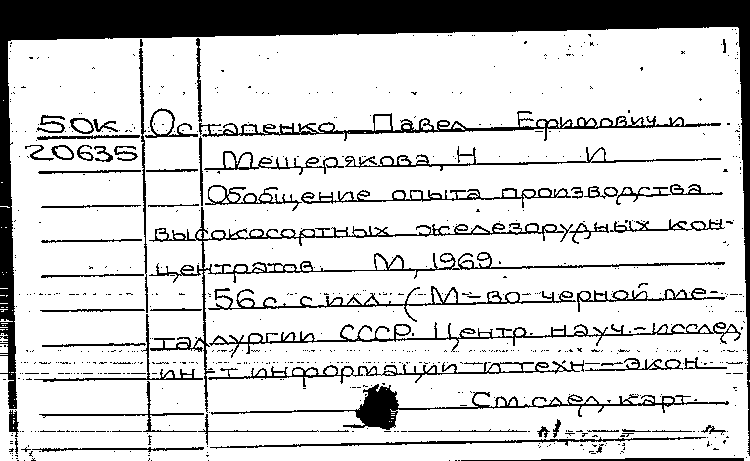 1
50к Остапенко, Павел Ефимович и
20635 Мещерякова, Н И
Обобщение опыта производства
высокосортных железорудных кон-
центратов. М, 1969.
56 с. с илл. (М-во черной ме-
таллургии СССР. Центр. науч.-исслед.
ин-т информации и техн.-экон.
См. след. карт.